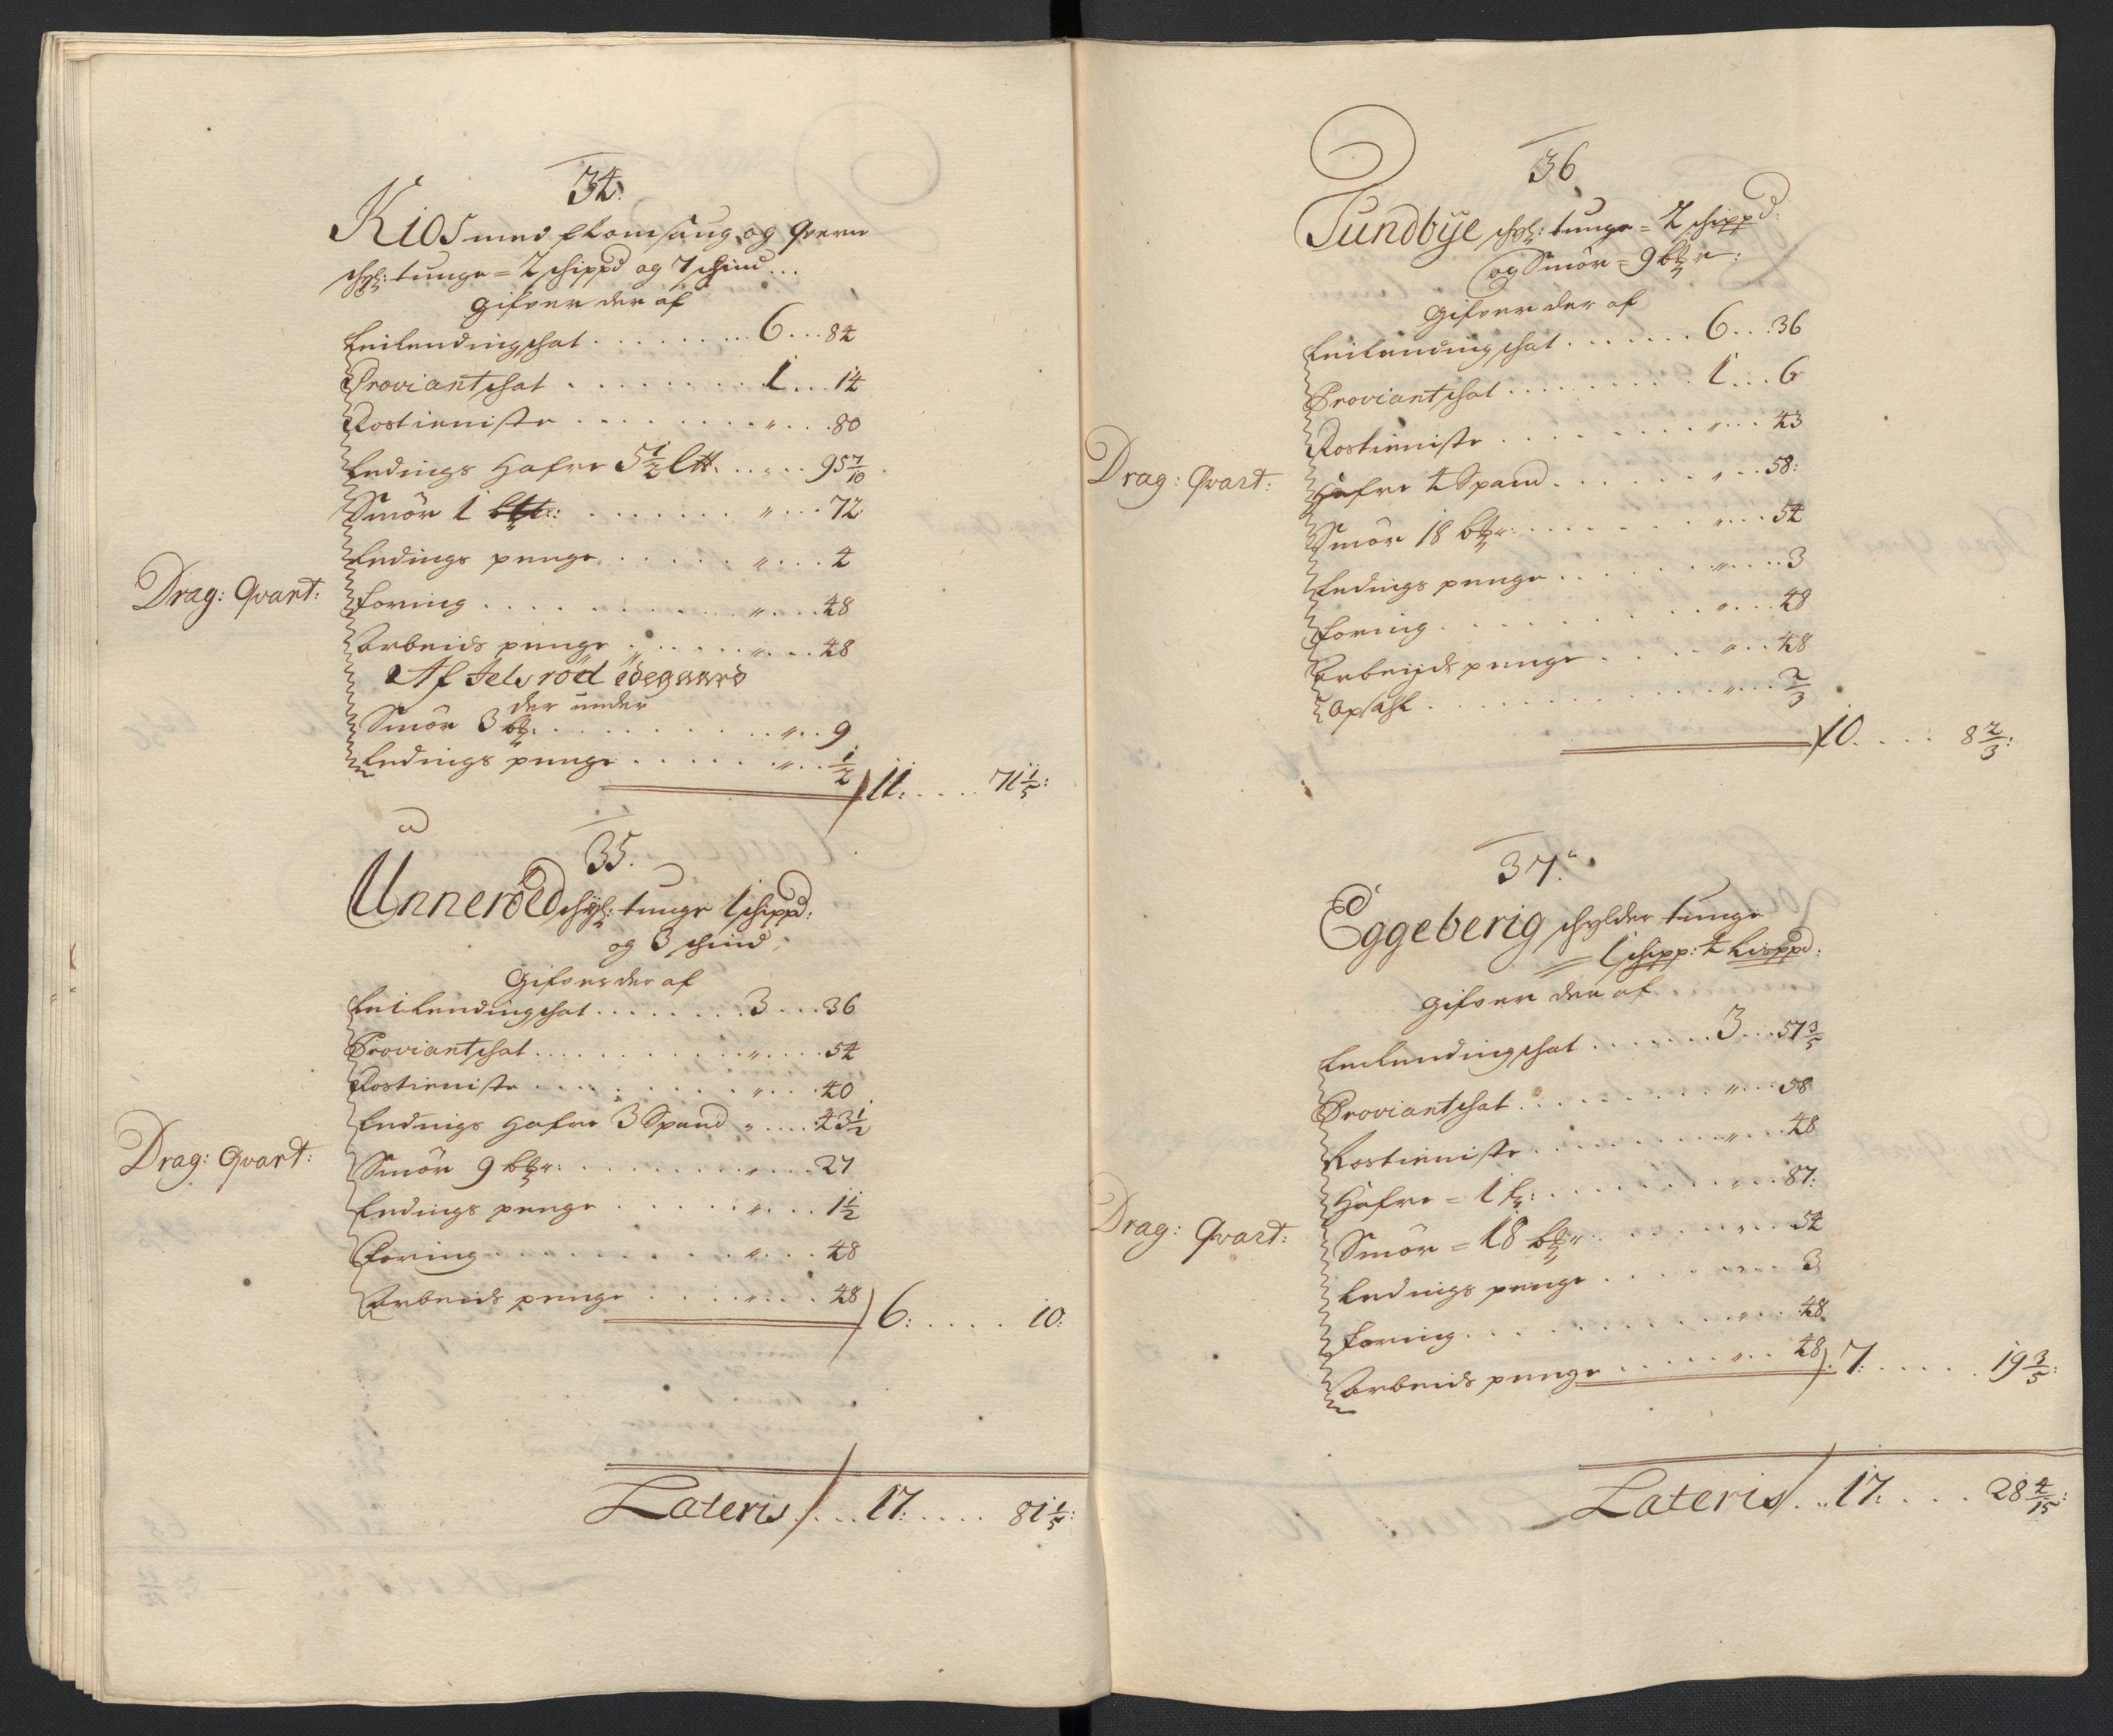 34:
Kios med flomsaug og qvern
schyl: tunge = 2 schippd og 7 schind...
gifver der af
Leilendingschat . . . 6 . . . 84
Proviantschat . . . 1 . . . 14
Rostieniste . . . " . . . 80
Ledings Hafre 5 1/2 L℔ . . . " . . . 95 7/10
Smör 1 . . . " . . . 72
Ledings penge . . . " . . . 4
Drag: Qvart:
foring . . . " . . . 48
Arbeids penge . . . " . . . 48
Af Jelsröd ödegaard
der under
Smör 3 b℔: . . . " . . . 9
Ledings penge . . . " . . . 1/2
11: . . . 71 1/5:
35.
Unneröed schyl: tunge 1 schippd:
og 3 schind
Gifver der af
Leilendingschat . . . 3 . . . 36
Proviantschat . . . " . . . 54
Rostieniste . . . " . . . 40
Ledings Hafre 3 Spand " . . . 43 1/2
Drag: Qvart:
Smör 9 b℔r: . . . " . . . 27
Ledings penge . . . " . . . 1 1/2
Foring . . . " . . . 48
Arbeids penge . . . " . . . 48
6: . . . 10:
Lateris . . . 17: . . . 81 1/5:
36
Tundbÿe schyl: tunge = 2 schippd:
og Smör = 9 b℔r:
Gifver der af
Leilendingschat . . . 6 . . . 36
Proviantschat . . . 1 . . . 6
Rostieniste . . . " . . . 43
Drag: Qvart:
Hafre 4 Spand . . . " . . . 58:
Smör 18 b℔r: . . . " . . . 54
Ledings penge . . . " . . . 3
foring . . . " . . . 48
Arbeyds penge . . . " . . . 48
Opsahl . . . " . . . 2/3
10. . . . 8 2/3:
37:
Eggeberig schylder tunge
= 1 schipp: 4 Lisppd:
gifver der af
Leilendingschat . . . 3 . . . 57 3/5
Proviantschat . . . " . . . 58
Rostieniste . . . " . . . 48
Hafre = 1 . . . " . . . 87:
Drag: Qvart:
Smör = 18 b℔r . . . " . . . 54
Ledings penge . . . " . . . 3
foring . . . " . . . 48
Arbeids penge . . . " . . . 48
7: . . . 19 3/5:
Lateris . . . 17: . . . 28 4/15: